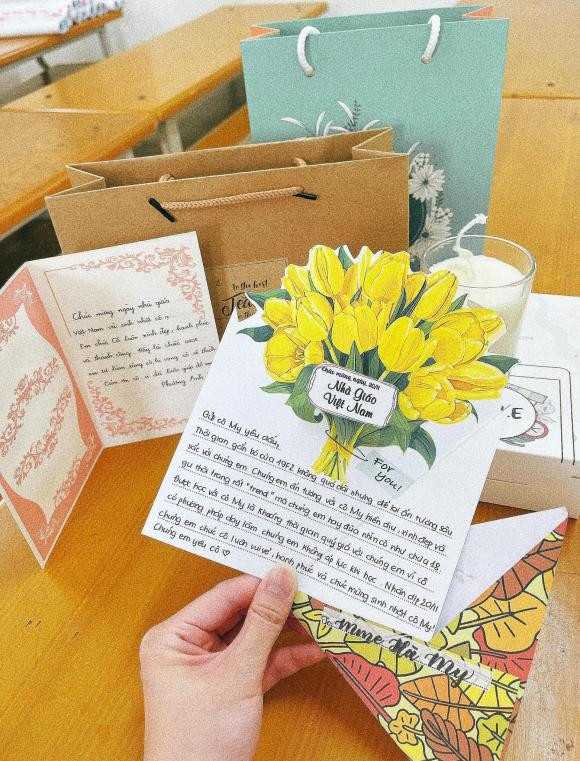 to the best
Chúc mừng ngày nhà giáo
Việt Nam và sinh nhật cô
Em chúc Cô luôn xinh đẹp, hạnh phúc
và thành công. Đây là chiếc
em tự làm bằng cả hi vọng cô sẽ thích
Cảm ơn cô vì đã luôn giúp đỡ em
Phương Anh
Chúc mừng ngày 20/11
Nhà Giáo
Việt Nam
For
you!
Gửi cô My yêu dấu,
Thời gian gắn bó của 19E2 không quá dài nhưng để lại ấn tượng sâu
sắc với chúng em. Chúng em ấn tượng với cô My hiền dịu, xinh đẹp và
gu thời trang rất "trend" mà chúng em hay đùa nhìn cô như chưa 18.
Được học với cô My là khoảng thời gian quý giá với chúng em vì cô
có phương pháp dạy làm chúng em không áp lực khi học. Nhân dịp 20/11
chúng em chúc cô luôn vui vẻ, hạnh phúc và chúc mừng sinh nhật cô My!
Chúng em yêu cô ♡
To: Mme Hà My